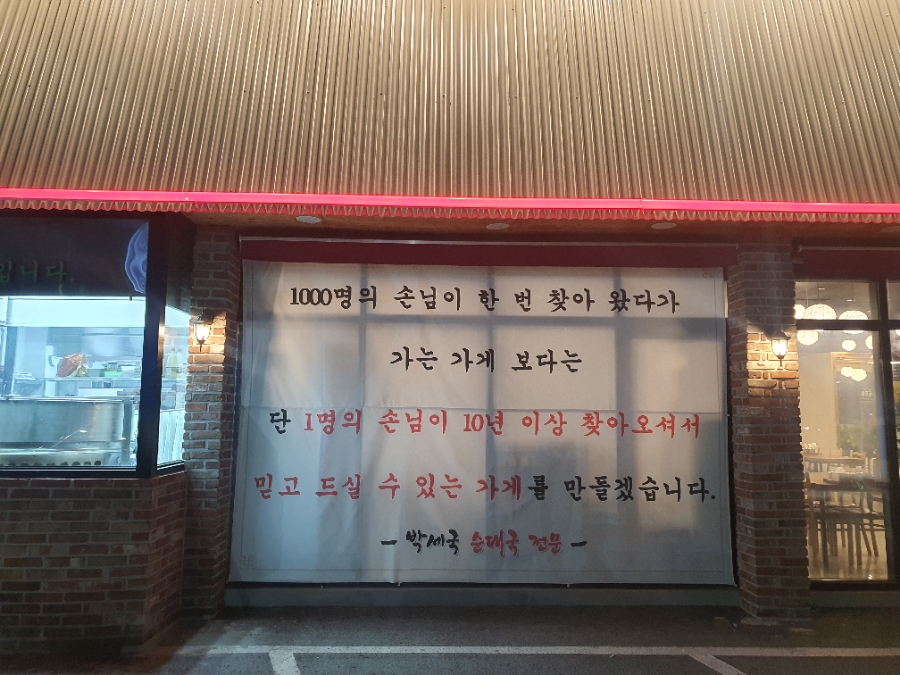 1000명의 손님이 한 번 찾아 왔다가
가는 가게 보다는
단 1명의 손님이 10년 이상 찾아오셔서
믿고 드실 수 있는 가게를 만들겠습니다.
- 박세국 순대국 전문 -